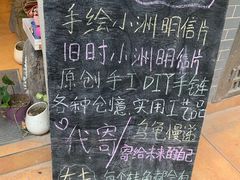 手绘小洲明信片
旧时小洲明信片
原创手工DIY手链
各种创意实用工艺品
代寄
寄给未来的自己